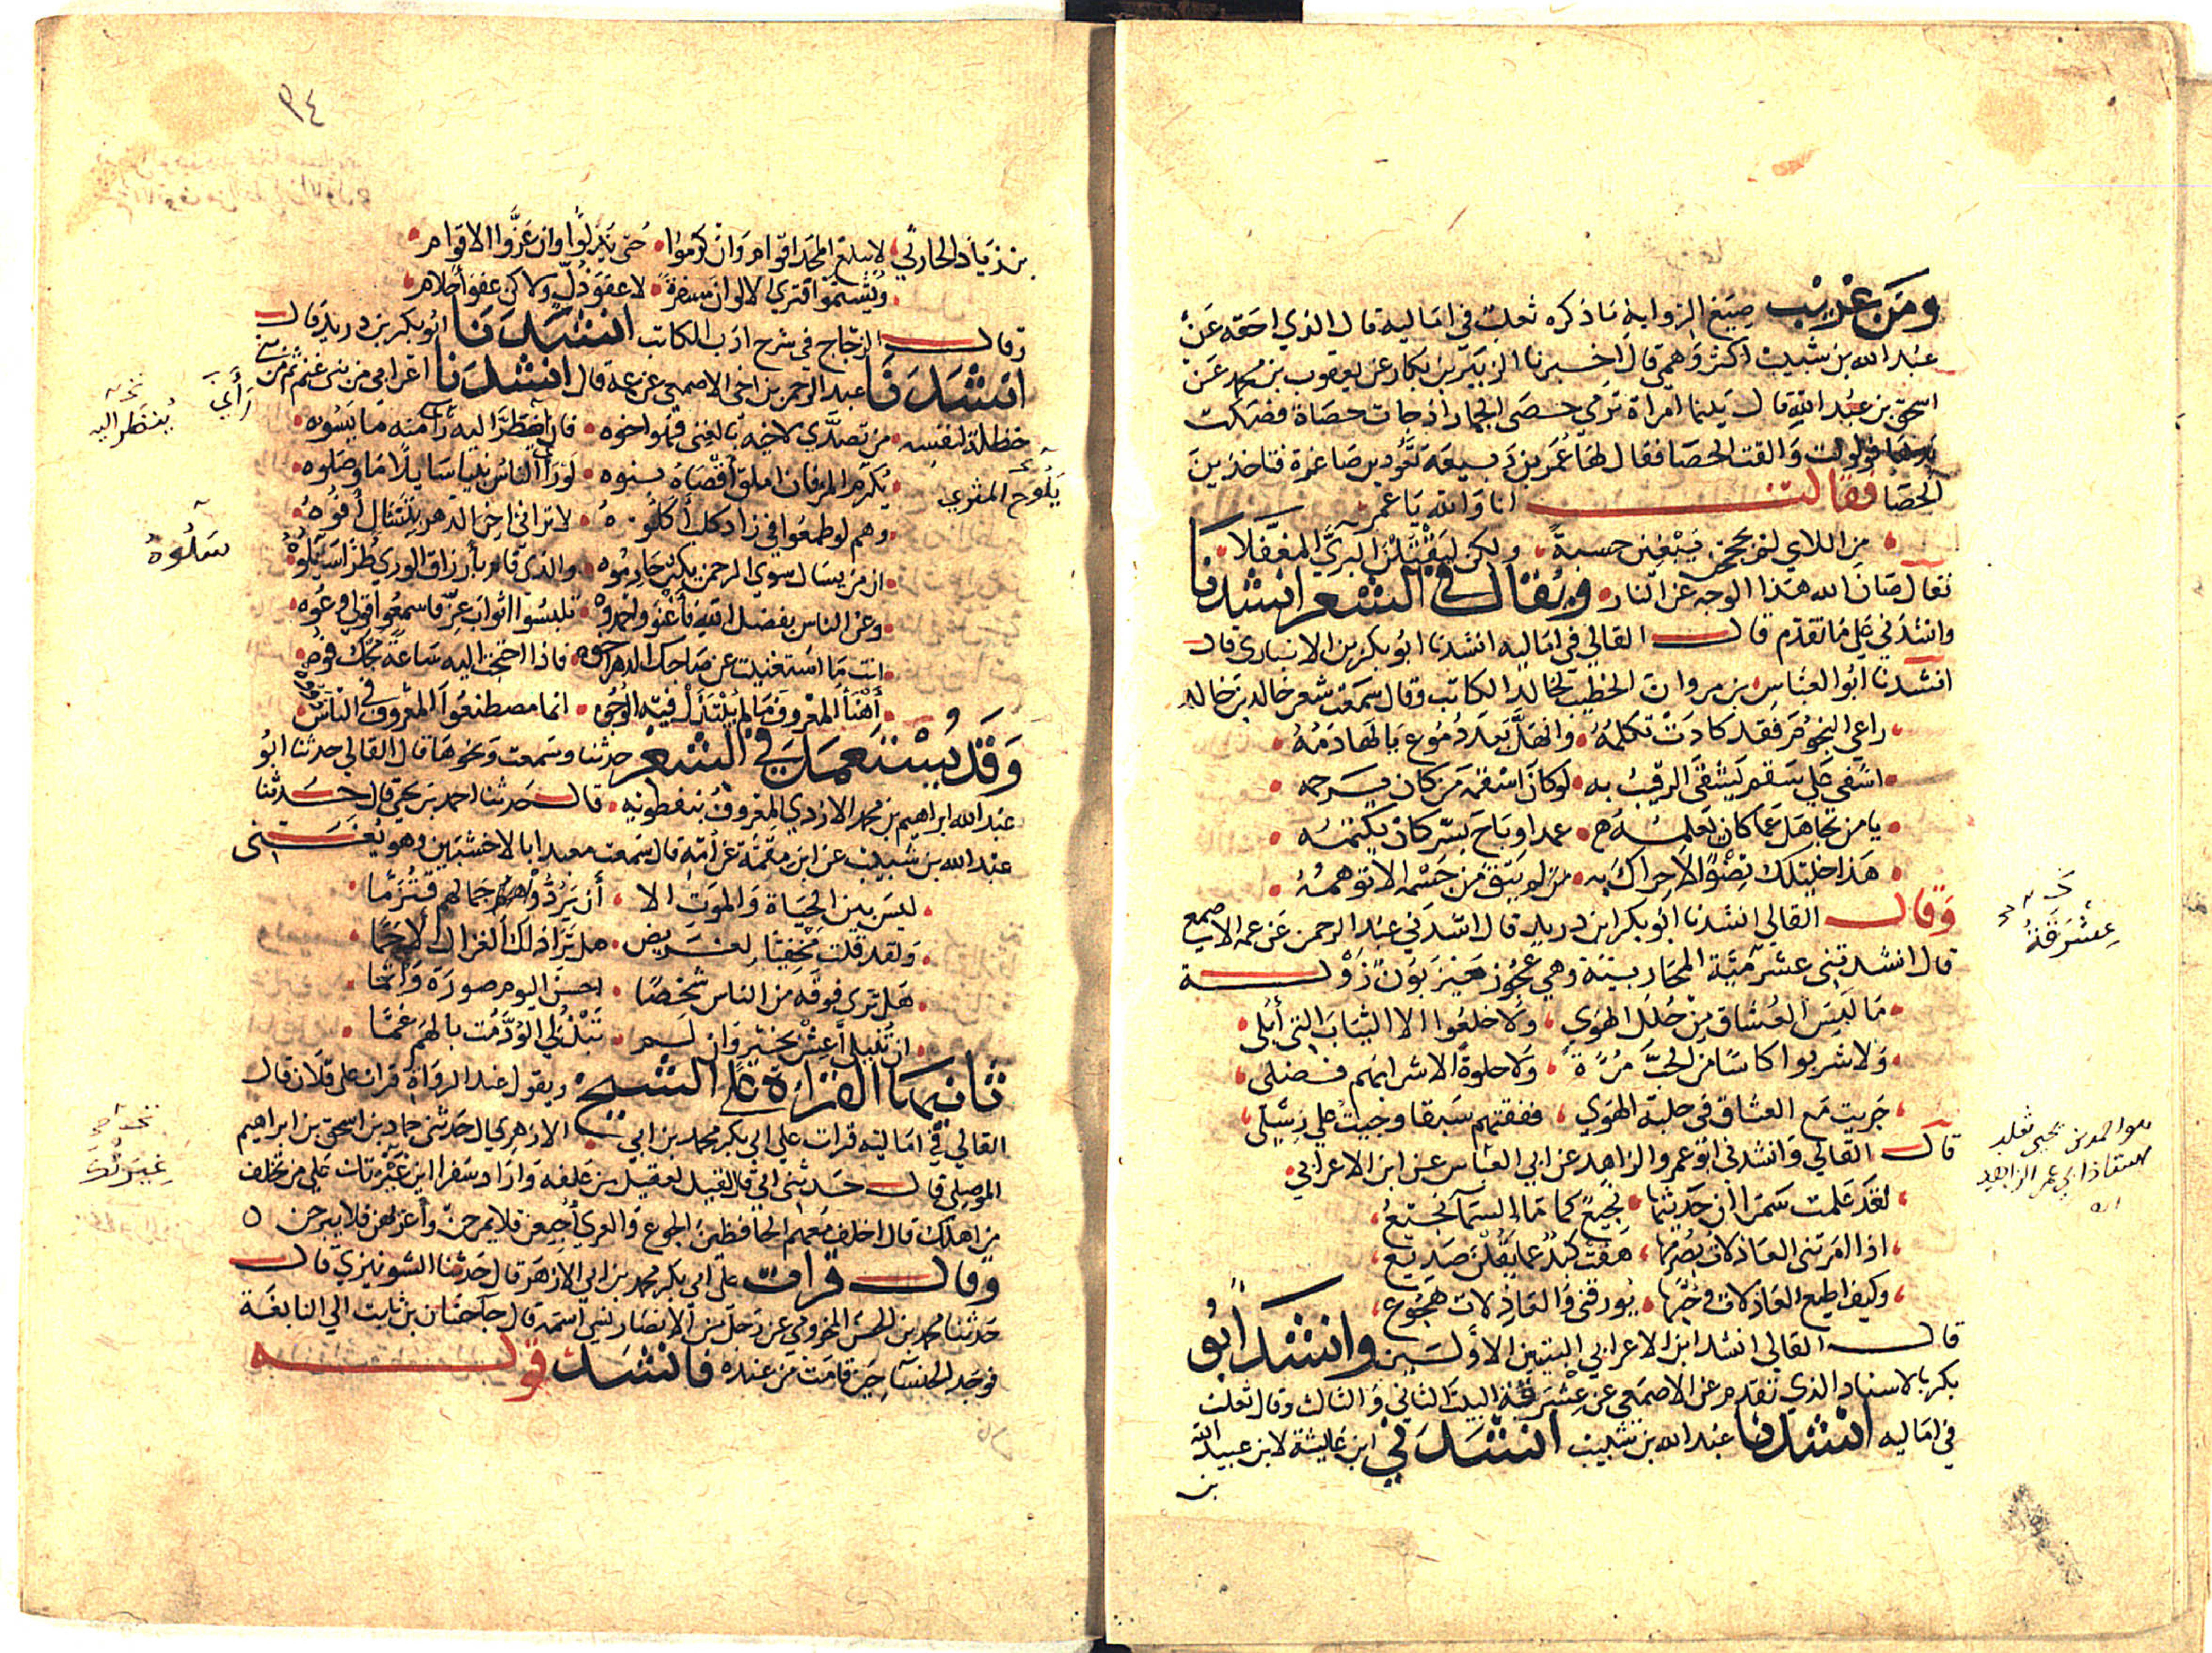 ومن غريب صيغ الرواية ما ذكره ثعلب في اماليه قال الذي احقه عن
عبد الله بن شبيب اكثر وهمي قال اخبرنا الزبير بن بكار عن يعقوب بن محمد عن
اسحق بن عبد الله قال بينما امراة ترمي حصى الجمار اذ جات حصاة فصكت
يدها فولولت والقت الحصا فقال لها عمر بن ربيعة تعودين صاغرة فتاخذين
الحصا فقالت انا والله يا عمر
من اللاي لم يحججن يبغين حسبة ولكن ليقتلن البري المغفلا
فقال صان الله هذا الوجه عن النار ويقال في الشعر انشدنا
وانشدني على ما تقدم قال القالي في اماليه انشدنا ابو بكر بن الانباري قال
انشدنا ابو العباس بن مروان الخطيب لخالد الكاتب وقال سمعت شعر خالد بن خالد
راعي النجوم فقد كادت تكلمه وانهل بعد دموع يا لها دمه
اشفى على سقم يشفى الرقيب به لو كان اسقمه من كان يرحمه
يا من تجاهل عما كان يعلمه عمدا وباح بسر كان يكتمه
هذا خليلك نضوا لا حراك به من لم يبق من جسمه الا توهمه
وقال القالي انشدنا ابو بكر ابن دريد قال انشدني عبد الرحمن عن عمه الاصمعي
قال انشدتني عشرمية المحاربية وهي عجوز حيزبون زولة
ما لبس العشاق من حلل الهوى ولا خلعوا الا الثياب التي ابلى
ولا شربوا كاسا من الحب مرة ولا حلوة الا شرابهم فضلى
جريت مع العشاق في حلبة الهوى ففقتهم سبقا وجيت على رسلى
قال القالي وانشدني ابو عمر والزاهد عن ابي العباس عن ابن الاعرابي
لقد علمت سمرا ان حديثها نجيع كما ماء السما نجيع
اذا امرتني العاذلات بصرمها هفت كبد عما يقلن صديع
وكيف اطيع العاذلات وحبها يورقني والعاذلات هجوع
قال القالي انشد ابن الاعرابي البيتين الاولين وانشد ابو
بكر بالاسناد الذي تقدم عن الاصمعي عن عشرقة البيت الثاني والثالث وقال ثعلب
في اماليه انشدنا عبد الله بن شبيب انشدني ابن عايشة لابن عبيد الله
بن
عشرقة
هو احمد بن يحيى ثعلب
استاذ ابي عمر الزاهد
اه
٩٤
بن زياد الحارثي لا يبلغ المجد اقوام وان كرموا حتى يذلوا وان عزوا لاقوام
ويشتموا فترى الالوان مسفرة لا عفو ذل ولاكن عفو أحلام
وقال الزجاج في شرح ادب الكاتب انشدنا ابو بكر بن دريد قال
انشدنا عبد الرحمن بن اخي الاصمعي عن عمه قال انشدنا اعرابي من بني تميم ثم من بني
حنظلة لنفسه من تصدى لاخيه بالغنى فهو اخوه فان اضطر اليه رآ منه ما يسوه
يكرم المرفان املق أقصاه بنوه لو رأى الناس نبيا سايلا ما وصلوه
وهم لو طمعوا في زاد كلب أكلوه لا تراني اخر الدهر بتسال أفوه
ان من يسال سوى الرحمن يكثر حارموه والذي قام بأرزاق الورى طرا سلوه
وعن الناس بفضل الله فأغنو واحمدوه تلبسوا اثواب عز فاسمعوا قولي وعوه
انت ما استغنيت عن صاحبك الدهر اخوه فاذا احتجت اليه ساعة مجك فوه
أهنأ المعروف ما لم تبتذل فيه الوجوه انما مصطنعوا المعروف في الناس ذووه
وقد يستعمل في الشعر حدثنا وسمعت ونحوها قال القالي حدثنا ابو
عبد الله ابراهيم بن محمد الازدي المعروف بنفطويه قال حدثنا احمد بن يحي قال حدثنا
عبد الله بن شبيب عن ابن مقمة عن أمه قال سمعت معبدا بالاخشبين وهو يغني
ليس بين الحياة والموت الا أن يردوا جمالهم فتزما
ولقد قلت مخفيا لغريض هل ترا ذلك الغزال الاجما
هل ترى فوقه من الناس شخصا احسن اليوم صورة وأتما
ان تنيلي أعش بخير وان لم تبذلي الود مت بالهم غما
ثانيها القراءة على الشيخ ويقول عند الرواة قرات على فلان قال
القالي في اماليه قرات على ابي بكر محمد بن ابي الازهري ال حدثني حماد بن اسحق بن ابراهيم
الموصلي قال حدثني ابي قال قيل لعقيل بن علفه وارا د سفرا اين غيرتك على من تخلف
من اهلك قال اخلف معهم الحافظين الجوع والعري أجيعهن فلا يمرحن وأعريهن فلا يبرحن
وقال قرات على ابي بكر محمد بن ابي الازهر قال حدثنا الشونيزي قال
حدثنا محمد بن الحسن المخزومي عن رجل من الانصار نسي اسمه قال جآ حسان بن ثابت الي النابغة
فوجد الخنسآ حين قامت من عنده فانشد قوله
رأى
ينظر اليه
يلوح المثري
سلوه
غيرتك